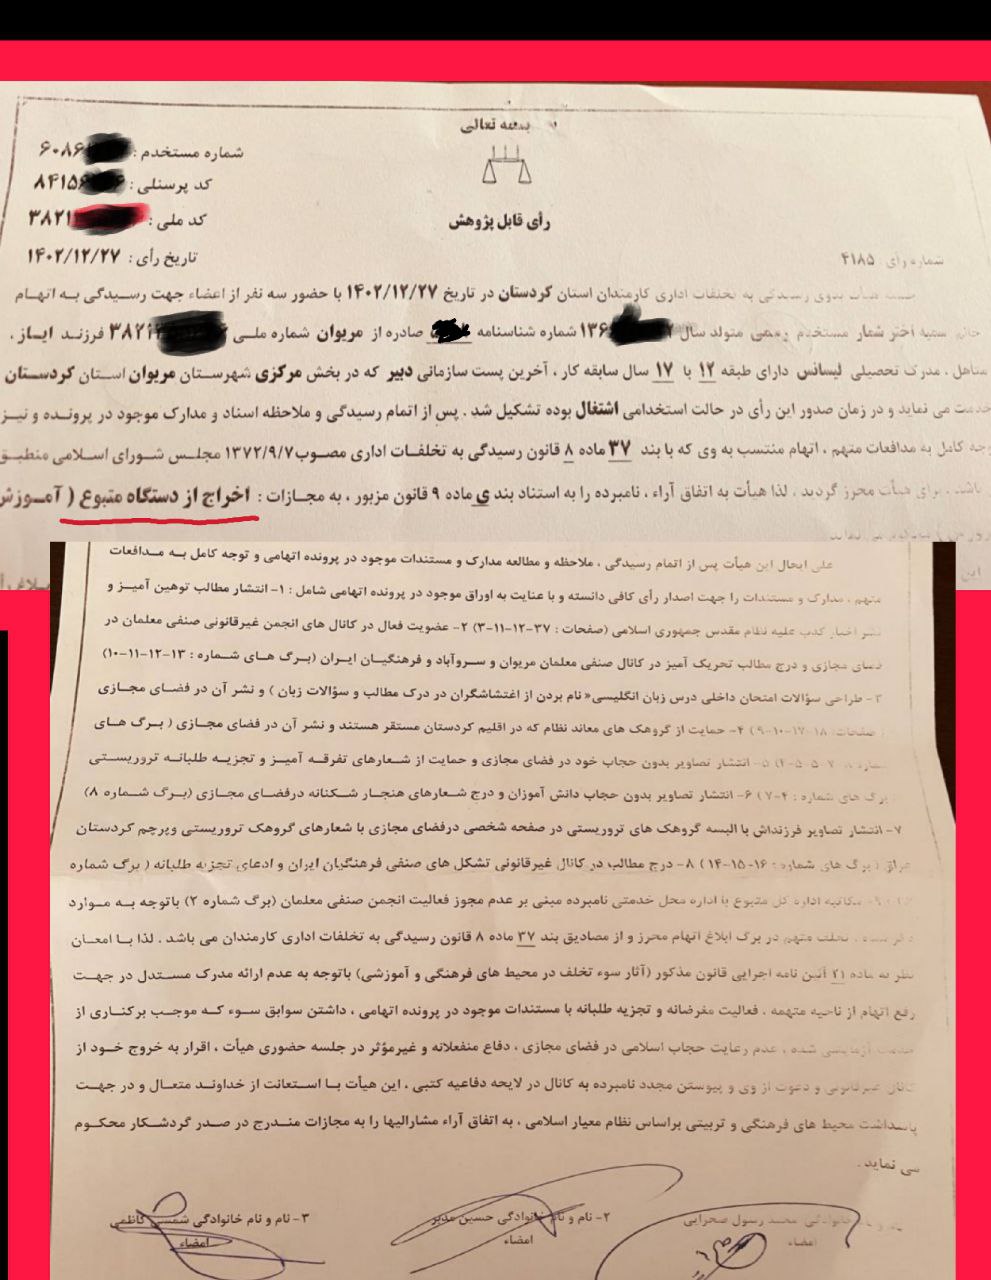 بسمه تعالی
شماره مستخدم : ۶۰۸۶
کد پرسنلی : ۸۴۱۵۶
کد ملی : ۳۸۲۱
رأی قابل پژوهش
تاریخ رأی : ۱۴۰۲/۱۲/۲۷
شماره رأی ۴۱۸۵
هیأت بدوی رسیدگی به تخلفات اداری کارمندان استان کردستان در تاریخ ۱۴۰۲/۱۲/۲۷ با حضور سه نفر از اعضاء جهت رسیدگی به اتهام
خانم سمیه اختر شمار مستخدم رسمی متولد سال ۱۳۶ شماره شناسنامه صادره از مریوان شماره ملی ۳۸۲۱ فرزند ایاز ،
متاهل ، مدرک تحصیلی لیسانس دارای طبقه ۱۲ با ۱۷ سال سابقه کار ، آخرین پست سازمانی دبیر که در بخش مرکزی شهرستان مریوان استان کردستان
خدمت می نماید و در زمان صدور این رأی در حالت استخدامی اشتغال بوده تشکیل شد . پس از اتمام رسیدگی و ملاحظه اسناد و مدارک موجود در پرونده و نیز
توجه کامل به مدافعات متهم ، اتهام منتسب به وی که با بند ۳۷ ماده ۸ قانون رسیدگی به تخلفات اداری مصوب ۱۳۷۲/۹/۷ مجلس شورای اسلامی منطبق
باشد ، برای هیأت محرز گردید ، لذا هیأت به اتفاق آراء ، نامبرده را به استناد بند ی ماده ۹ قانون مزبور ، به مجازات : اخراج از دستگاه متبوع ( آموزش
این
علی ایحال این هیأت پس از اتمام رسیدگی ، ملاحظه و مطالعه مدارک و مستندات موجود در پرونده اتهامی و توجه کامل به مدافعات
متهم ، مدارک و مستندات را جهت اصدار رأی کافی دانسته و با عنایت به اوراق موجود در پرونده اتهامی شامل : ۱- انتشار مطالب توهین آمیز و
نشر اخبار کذب علیه نظام مقدس جمهوری اسلامی (صفحات : ۳۷-۱۲-۱۱-۳) ۲- عضویت فعال در کانال های انجمن غیرقانونی صنفی معلمان در
فضای مجازی و درج مطالب تحریک آمیز در کانال صنفی معلمان مریوان و سروآباد و فرهنگیان ایران (برگ های شماره : ۱۳-۱۲-۱۱-۱۰)
۳- طراحی سؤالات امتحان داخلی درس زبان انگلیسی« نام بردن از اغتشاشگران در درک مطالب و سؤالات زبان ) و نشر آن در فضای مجازی
صفحات: ۱۸-۱۷-۱۰-۹) ۴- حمایت از گروهک های معاند نظام که در اقلیم کردستان مستقر هستند و نشر آن در فضای مجازی ( برگ های
۵- انتشار تصاویر بدون حجاب خود در فضای مجازی و حمایت از شعارهای تفرقه آمیز و تجزیه طلبانه تروریستی
برگ های شماره : ۴-۷) ۶- انتشار تصاویر بدون حجاب دانش آموزان و درج شعارهای هنجار شکنانه درفضای مجازی (برگ شماره ۸)
۷- انتشار تصاویر فرزنداش با البسه گروهک های تروریستی در صفحه شخصی درفضای مجازی با شعارهای گروهک تروریستی وپرچم کردستان
عراق (برگ های شماره : ۱۶-۱۵-۱۴) ۸- درج مطالب در کانال غیرقانونی تشکل های صنفی فرهنگیان ایران و ادعای تجزیه طلبانه ( برگ شماره
۹- مکاتبه اداره کل متبوع با اداره محل خدمتی نامبرده مبنی بر عدم مجوز فعالیت انجمن صنفی معلمان (برگ شماره ۲) باتوجه به موارد
تخلف متهم در برگ ابلاغ اتهام محرز و از مصادیق بند ۳۷ ماده ۸ قانون رسیدگی به تخلفات اداری کارمندان می باشد . لذا با امعان
نظر به ماده ۲۱ آئین نامه اجرایی قانون مذکور (آثار سوء تخلف در محیط های فرهنگی و آموزشی) باتوجه به عدم ارائه مدرک مستدل در جهت
رفع اتهام از ناحیه متهمه ، فعالیت مغرضانه و تجزیه طلبانه با مستندات موجود در پرونده اتهامی ، داشتن سوابق سوء که موجب برکناری از
شده ، عدم رعایت حجاب اسلامی در فضای مجازی ، دفاع منفعلانه و غیرمؤثر در جلسه حضوری هیأت ، اقرار به خروج خود از
کانال غیرقانونی و دعوت از وی و پیوستن مجدد نامبرده به کانال در لایحه دفاعیه کتبی ، این هیأت با استعانت از خداوند متعال و در جهت
پاسداشت محیط های فرهنگی و تربیتی براساس نظام معیار اسلامی ، به اتفاق آراء مشارالیها را به مجازات مندرج در صدر گردشکار محکوم
می نماید .
نام و نام خانوادگی محمد رسول صحرایی
۲- نام و نام خانوادگی حسین مدبر
۳- نام و نام خانوادگی شمسی کاظمی
امضاء
امضاء
امضاء